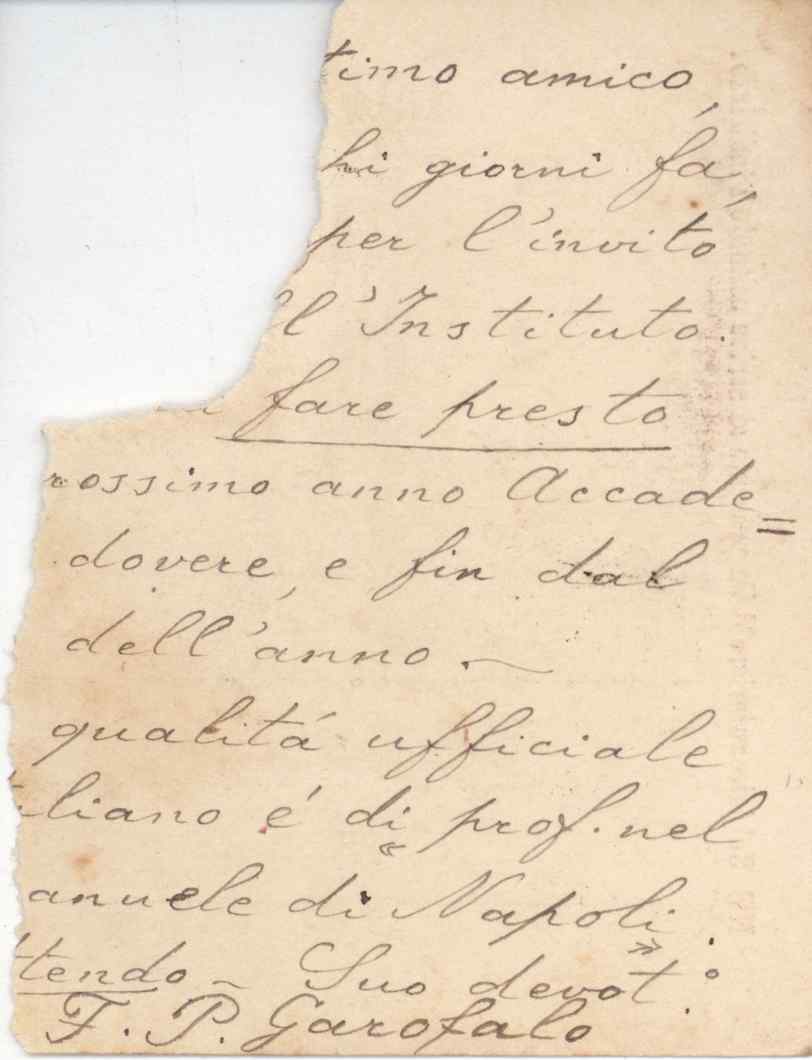 timo amico,
hi giorni fa,
per l'invito
ll'Instituto.
fare presto
rossimo anno Accade=
dovere, e fin dal
dell'anno.
qualitá ufficiale
liano é di prof. nel
"
anuele di Napoli.
"
tendo - Suo devot.º
F. P. Garofalo